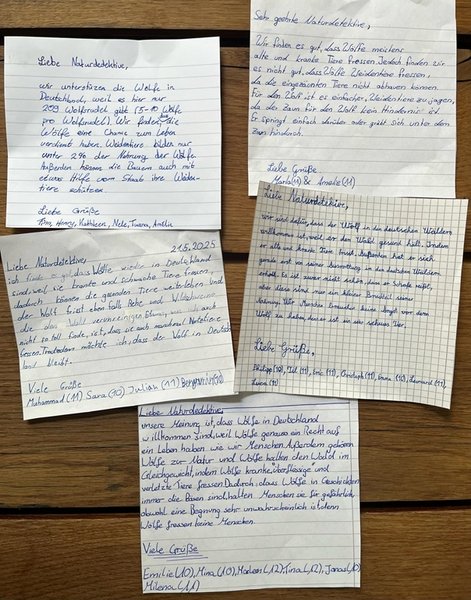 Liebe Naturdedektive,
wir unterstützen die Wölfe in
Deutschland, weil es hier nur
209 Wolfsrudel gibt (5-10 Wölfe
pro Wolfsrudel). Wir finden, die
Wölfe eine Chance zum Leben
verdient haben. Weidentiere bilden nur
unter 2% der Nahrung der Wölfe.
Außerdem können die Bauern auch mit
etwas Hilfe vom Staat ihre Weiden-
tiere schützen
Liebe Grüße
Henry, Kathleen, Nele,
Sehr geehrte Naturdetektive,
Wir finden es gut, dass Wölfe meistens
alte und kranke Tiere fressen. Jedoch finden wir
es nicht gut, dass Wölfe Weidentiere fressen,
da die eingezäunten Tiere nicht abhauen können.
Für den Wolf ist es einfacher, Weidentiere zu jagen,
da der Zaun für den Wolf kein Hindernis ist.
Er springt einfach drüber oder gräbt sich unter dem
Zaun hindurch.
Liebe Grüße
Maria (11) & Amelie (11)
Liebe Naturdetektive,
wir sind dafür, dass der Wolf in die deutschen Wäldern
willkommen ist, weil er den Wald gesund hält. Indem
er alte und kranke Tiere frisst. Außerdem hat er sich
gerade erst von seiner Ausrottung in den deutschen Wäldern
erholt. Es ist zwar nicht schön, dass er Schafe reißt,
aber diese sind nur ein kleiner Bruchteil seiner
Nahrung. Wir Menschen brauchen keine Angst vor dem
Wolf zu haben, denn er ist ein sehr scheues Tier.
Liebe Grüße,
Philipp (10), Eric (11), Christoph (11), Emma (10), Leonard (11),
Luca (11)
21.5.2025
Liebe Naturdedektive,
ich finde es gut, dass Wölfe wieder in Deutschland
sind, weil sie kranke und schwache Tiere fressen,
dadurch können die gesunden Tiere weiterleben und
der Wolf frisst eben falls Rehe und Wildschweine,
die den Wald verunreinigen
nicht so toll finde, ist, dass sie auch manchmal Nutztiere
fressen. Trotzdem möchte ich, dass der Wolf in Deutsch-
land bleibt.
Viele Grüße
Muhammad (11) Sara (10) Julian (11)
Liebe Naturdedektive,
unsere Meinung ist, dass Wölfe in Deutschland
willkommen sind, weil Wölfe genauso ein Recht auf
ein Leben haben wie wir Menschen. Außerdem gehören
Wölfe zur Natur und Wölfe halten den Wald im
Gleichgewicht, indem Wölfe kranke, "überflüssige" und
verletzte Tiere fressen. Dadurch, dass Wölfe in Geschichten
immer die Bösen sind, halten Menschen sie für gefährlich,
obwohl eine Begnung sehr unwahrscheinlich ist, denn
Wölfe fressen keine Menschen.
Viele Grüße
Emilie (10), Mina (10), Marleen (12), Tina (12), Jonas (10)
Milena (11)